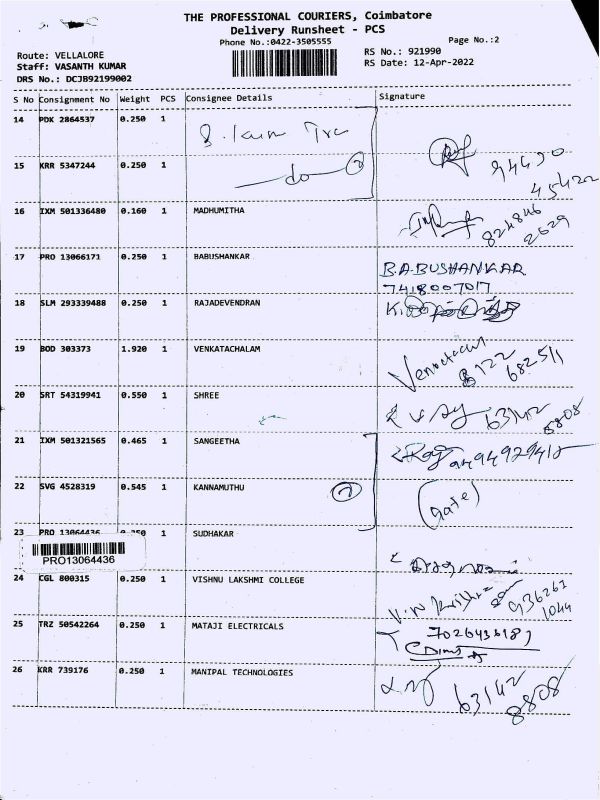 THE PROFESSIONAL COURIERS, Coimbatore
Delivery Runsheet - PCS
Phone No.:0422-3505555
Page No.:2
Route: VELLALORE
Staff: VASANTH KUMAR
DRS No.: DCJB92199002
RS No.: 921990
RS Date: 12-Apr-2022
S No Consignment No Weight PCS Consignee Details Signature
14 PDK 2864537 0.250 1
15 KRR 5347244 0.250 1 do 2
94430
45422
16 IXM 501336480 0.160 1 MADHUMITHA
824846
2629
17 PRO 13066171 0.250 1 BABUSHANKAR B.A.BUSHANKAR
7418007017
18 SLM 293339488 0.250 1 RAJADEVENDRAN
19 BOD 303373 1.920 1 VENKATACHALAM
682511
20 SRT 54319941 0.550 1 SHREE 63142
8808
21 IXM 501321565 0.465 1 SANGEETHA
22 SVG 4528319 0.545 1 KANNAMUTHU 2 (Gate)
23 PRO 13064436 0.250 1 SUDHAKAR
PRO13064436
24 CGL 800315 0.250 1 VISHNU LAKSHMI COLLEGE
936261
1044
25 TRZ 50542264 0.250 1 MATAJI ELECTRICALS
26 KRR 739176 0.250 1 MANIPAL TECHNOLOGIES 63142
8808